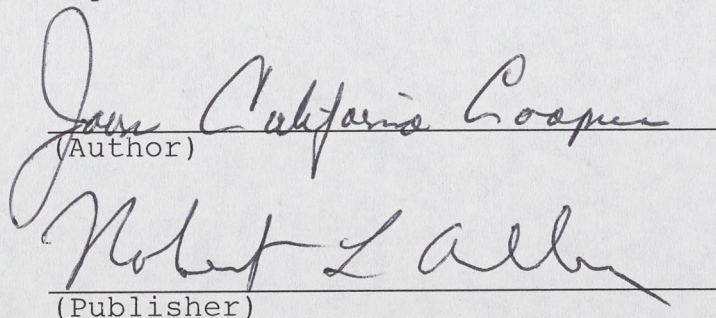 Joan California Cooper
(Author)
Robert L Allen
(Publisher)